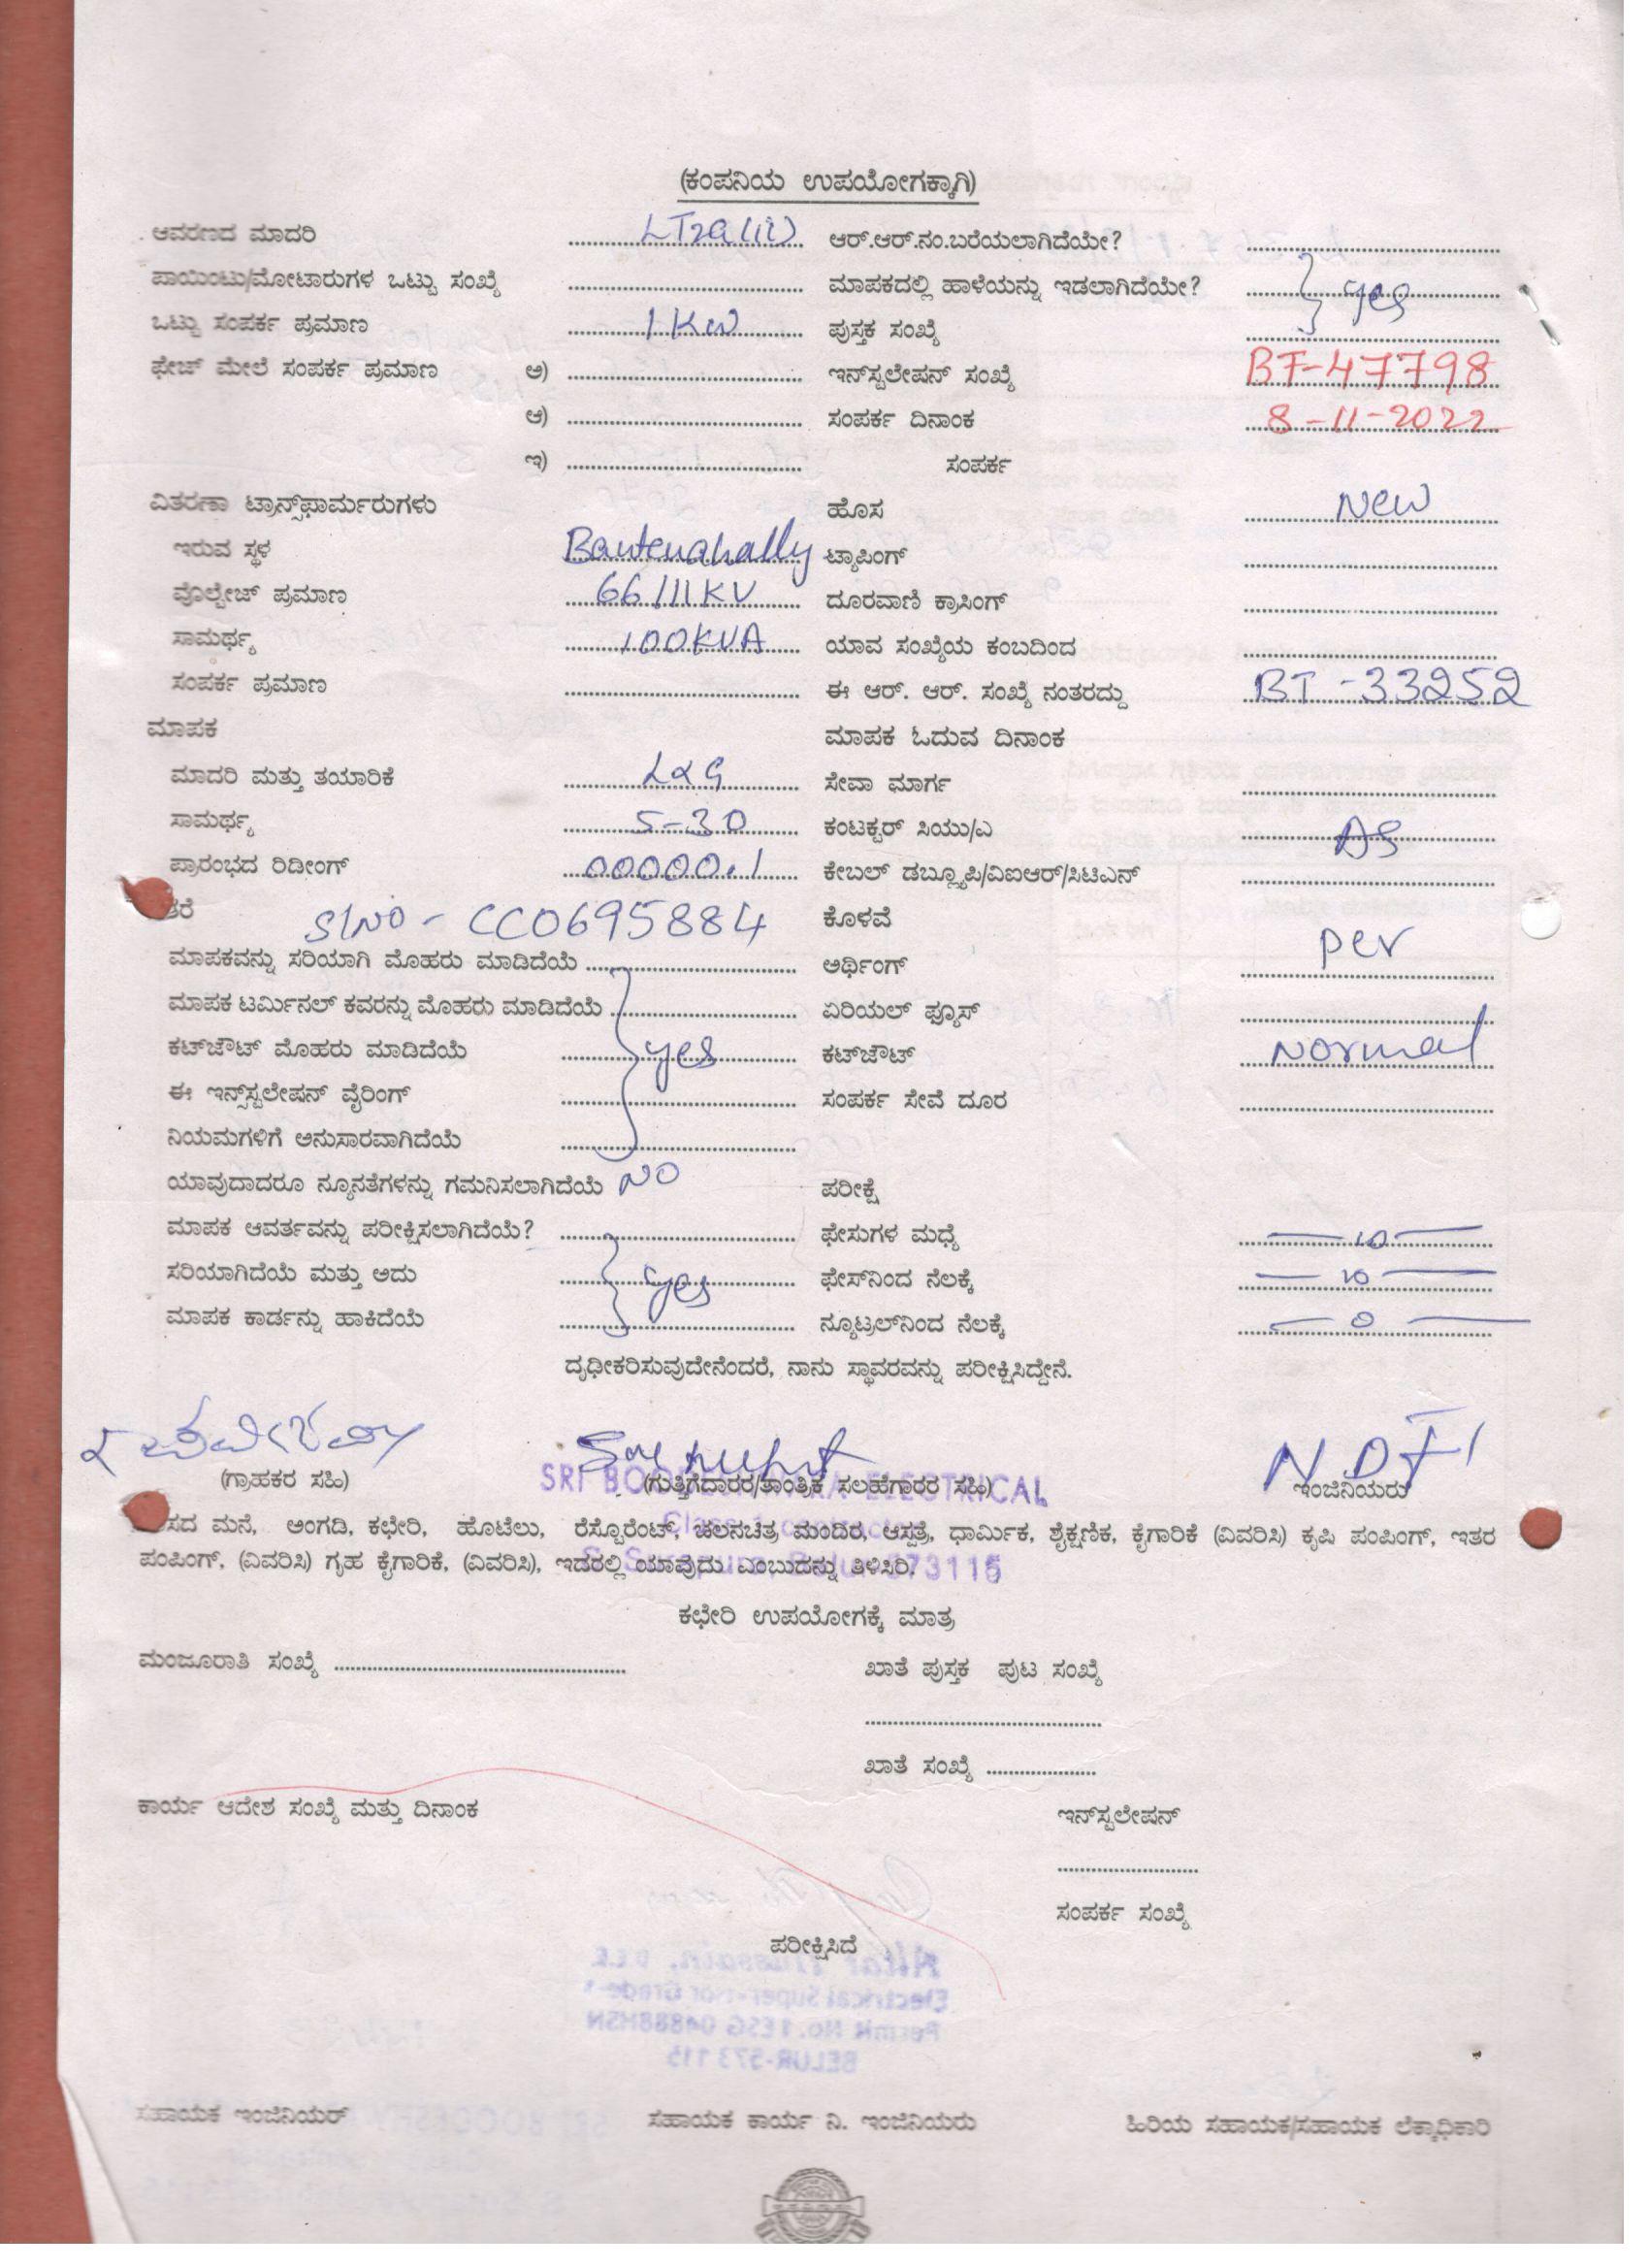 (ಕಂಪನಿಯ ಉಪಯೋಗಕ್ಕಾಗಿ)
ಆವರಣದ ಮಾದರಿ LT2a(ii) ಆರ್.ಆರ್.ನಂ.ಬರೆಯಲಾಗಿದೆಯೇ?
ಪಾಯಿಂಟು/ಮೋಟಾರುಗಳ ಒಟ್ಟು ಸಂಖ್ಯೆ ಮಾಪಕದಲ್ಲಿ ಹಾಳೆಯನ್ನು ಇಡಲಾಗಿದೆಯೇ? yes
ಒಟ್ಟು ಸಂಪರ್ಕ ಪ್ರಮಾಣ 1 KW ಪುಸ್ತಕ ಸಂಖ್ಯೆ
ಫೇಜ್ ಮೇಲೆ ಸಂಪರ್ಕ ಪ್ರಮಾಣ ಅ) ಇನ್‌ಸ್ಟಲೇಷನ್ ಸಂಖ್ಯೆ BT-47798
ಆ) ಸಂಪರ್ಕ ದಿನಾಂಕ 8-11-2022
ಇ) ಸಂಪರ್ಕ
ವಿತರಣಾ ಟ್ರಾನ್ಸ್‌ಫಾರ್ಮರುಗಳು ಹೊಸ New
ಇರುವ ಸ್ಥಳ Bantenahally ಟ್ಯಾಪಿಂಗ್
ವೊಲ್ಟೇಜ್ ಪ್ರಮಾಣ 66/11KV ದೂರವಾಣಿ ಕ್ರಾಸಿಂಗ್
ಸಾಮರ್ಥ್ಯ 100KVA ಯಾವ ಸಂಖ್ಯೆಯ ಕಂಬದಿಂದ
ಸಂಪರ್ಕ ಪ್ರಮಾಣ ಈ ಆರ್. ಆರ್. ಸಂಖ್ಯೆ ನಂತರದ್ದು BT-33252
ಮಾಪಕ ಮಾಪಕ ಓದುವ ದಿನಾಂಕ
ಮಾದರಿ ಮತ್ತು ತಯಾರಿಕೆ L&G ಸೇವಾ ಮಾರ್ಗ
ಸಾಮರ್ಥ್ಯ 5-30 ಕಂಟಕ್ಟರ್ ಸಿಯು/ಎ AS
ಪ್ರಾರಂಭದ ರಿಡೀಂಗ್ 00000.1 ಕೇಬಲ್ ಡಬ್ಲ್ಯೂಪಿ/ವಿಐಆರ್/ಸಿಟಿಎನ್
ತರೆ Sl No - CC0695884 ಕೊಳವೆ per
ಮಾಪಕವನ್ನು ಸರಿಯಾಗಿ ಮೊಹರು ಮಾಡಿದೆಯೆ ಅರ್ಥಿಂಗ್
ಮಾಪಕ ಟರ್ಮಿನಲ್ ಕವರನ್ನು ಮೊಹರು ಮಾಡಿದೆಯೆ ಏರಿಯಲ್ ಫ್ಯೂಸ್
ಕಟ್‌ಜೌಟ್ ಮೊಹರು ಮಾಡಿದೆಯೆ yes ಕಟ್‌ಜೌಟ್ Normal
ಈ ಇನ್ಸ್‌ಸ್ಟಲೇಷನ್ ವೈರಿಂಗ್ ಸಂಪರ್ಕ ಸೇವೆ ದೂರ
ನಿಯಮಗಳಿಗೆ ಅನುಸಾರವಾಗಿದೆಯೆ
ಯಾವುದಾದರೂ ನ್ಯೂನತೆಗಳನ್ನು ಗಮನಿಸಲಾಗಿದೆಯೆ NO ಪರೀಕ್ಷೆ
ಮಾಪಕ ಆವರ್ತವನ್ನು ಪರೀಕ್ಷಿಸಲಾಗಿದೆಯೆ? ಫೇಸುಗಳ ಮಧ್ಯೆ — 10 —
ಸರಿಯಾಗಿದೆಯೆ ಮತ್ತು ಅದು yes ಫೇಸ್‌ನಿಂದ ನೆಲಕ್ಕೆ — 10 —
ಮಾಪಕ ಕಾರ್ಡನ್ನು ಹಾಕಿದೆಯೆ ನ್ಯೂಟ್ರಲ್‌ನಿಂದ ನೆಲಕ್ಕೆ — 0 —
ದೃಢೀಕರಿಸುವುದೇನೆಂದರೆ, ನಾನು ಸ್ಥಾವರವನ್ನು ಪರೀಕ್ಷಿಸಿದ್ದೇನೆ.
(ಗ್ರಾಹಕರ ಸಹಿ) (ಗುತ್ತಿಗೆದಾರರ/ತಾಂತ್ರಿಕ ಸಲಹೆಗಾರರ ಸಹಿ) ಇಂಜಿನಿಯರು
SRI ELECTRICAL
ಸದ ಮನೆ, ಅಂಗಡಿ, ಕಛೇರಿ, ಹೊಟೆಲು, ರೆಸ್ಟೊರೆಂಟ್, ಚಲನಚಿತ್ರ ಮಂದಿರ, ಆಸ್ಪತ್ರೆ, ಧಾರ್ಮಿಕ, ಶೈಕ್ಷಣಿಕ, ಕೈಗಾರಿಕೆ (ವಿವರಿಸಿ) ಕೃಷಿ ಪಂಪಿಂಗ್, ಇತರ
ಪಂಪಿಂಗ್, (ವಿವರಿಸಿ) ಗೃಹ ಕೈಗಾರಿಕೆ, (ವಿವರಿಸಿ), ಇದರಲ್ಲಿ ಯಾವುದು ಎಂಬುದನ್ನು ತಿಳಿಸಿರಿ.
ಕಛೇರಿ ಉಪಯೋಗಕ್ಕೆ ಮಾತ್ರ
ಮಂಜೂರಾತಿ ಸಂಖ್ಯೆ ಖಾತೆ ಪುಸ್ತಕ ಪುಟ ಸಂಖ್ಯೆ
ಖಾತೆ ಸಂಖ್ಯೆ
ಕಾರ್ಯ ಆದೇಶ ಸಂಖ್ಯೆ ಮತ್ತು ದಿನಾಂಕ ಇನ್‌ಸ್ಟಲೇಷನ್
ಸಂಪರ್ಕ ಸಂಖ್ಯೆ
ಪರೀಕ್ಷಿಸಿದೆ
ಸಹಾಯಕ ಇಂಜಿನಿಯರ್ ಸಹಾಯಕ ಕಾರ್ಯ ನಿ. ಇಂಜಿನಿಯರು ಹಿರಿಯ ಸಹಾಯಕ/ಸಹಾಯಕ ಲೆಕ್ಕಾಧಿಕಾರಿ